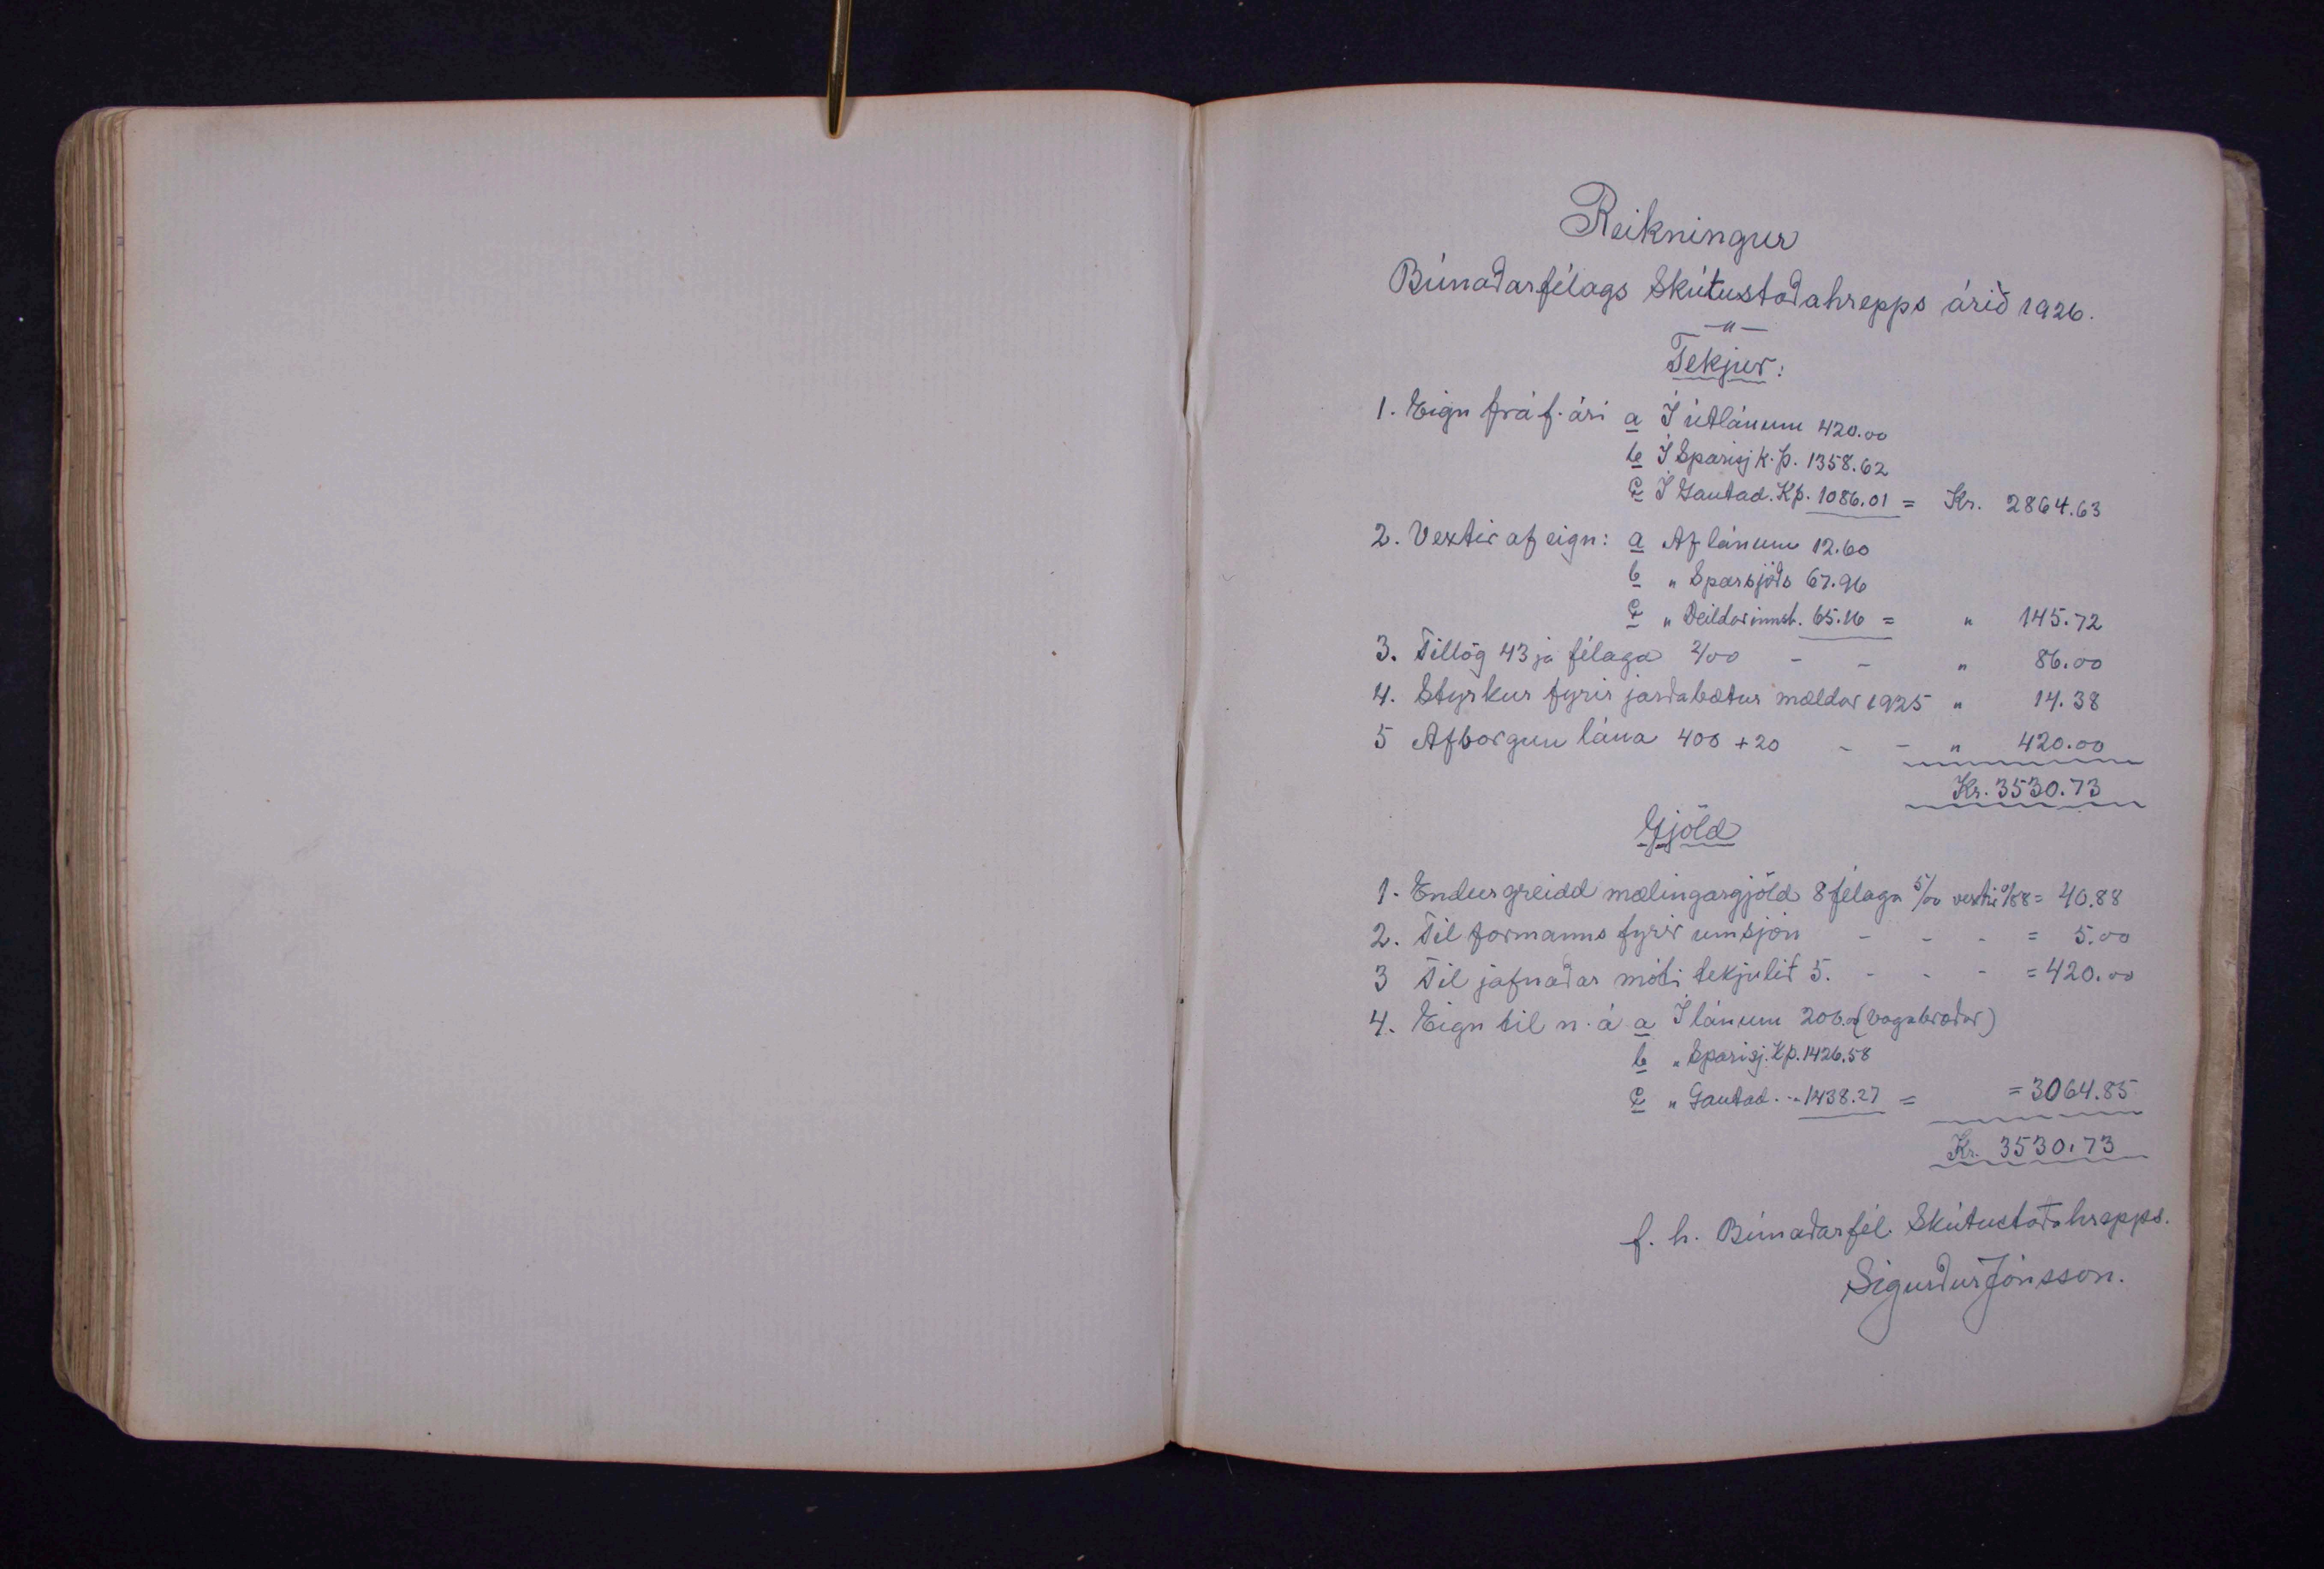 Reikningur
Búnaðarfélags Skútustaðahrepps árið 1926.
—"—
Tekjur:
1. Eign frá f. ári a Í útlánum 420.00
b Í Sparisj K. Þ. 1358.62
c Í Gautad. Kþ. 1086.01 = Kr. 2864.63
2. Vextir af eign: a Af lánum 12.60
b " Sparsjóðs 67.96
c " Deildarinnst. 65.16 = " 145.72
3. Tillög 43ja félaga 2/00 - - " 86.00
4. Styrkur fyrir jarðabætur mældar 1925 " 14.38
5 Afborgun lána 400 + 20 - - " 420.00
Kr. 3530.73
Gjöld
1. Endurgreidd mælingargjöld 8 félaga 5/00 vextir 0/88 = 40.88
2. Til formanns fyrir umsjón - - - = 5.00
3 Til jafnaðar móti tekjulið 5. - - - = 420.00
4. Eign til n. á a Í lánum 200.00 (Vogabræður)
b " Sparisj. Kþ. 1426.58
c " Gautad. -"- 1438.27 = = 3064.85
Kr. 3530.73
f. h. Búnaðarfél. Skútustaðahrepps.
Sigurður Jónsson.